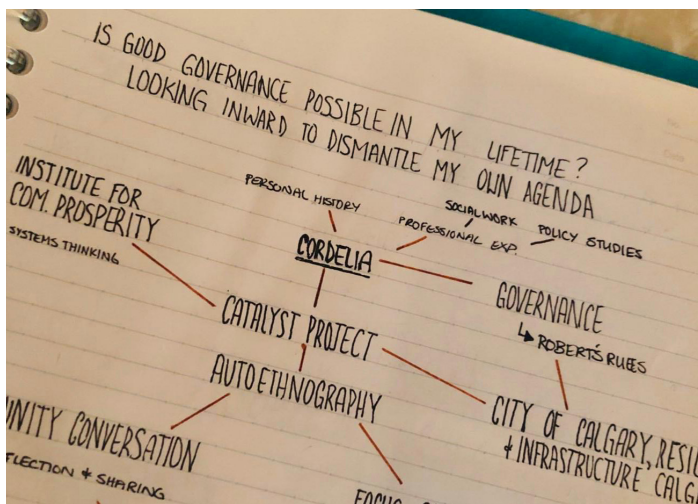 IS GOOD GOVERNANCE POSSIBLE IN MY LIFETIME?
LOOKING INWARD TO DISMANTLE MY OWN AGENDA
INSTITUTE FOR
COM. PROSPERITY
SYSTEMS THINKING
PERSONAL HISTORY
SOCIAL WORK
PROFESSIONAL EXP.
POLICY STUDIES
CORDELIA
GOVERNANCE
↳ ROBERT'S RULES
CATALYST PROJECT
AUTOETHNOGRAPHY
CITY OF CALGARY,
+ INFRASTRUCTURE
CONVERSATION
+ SHARING